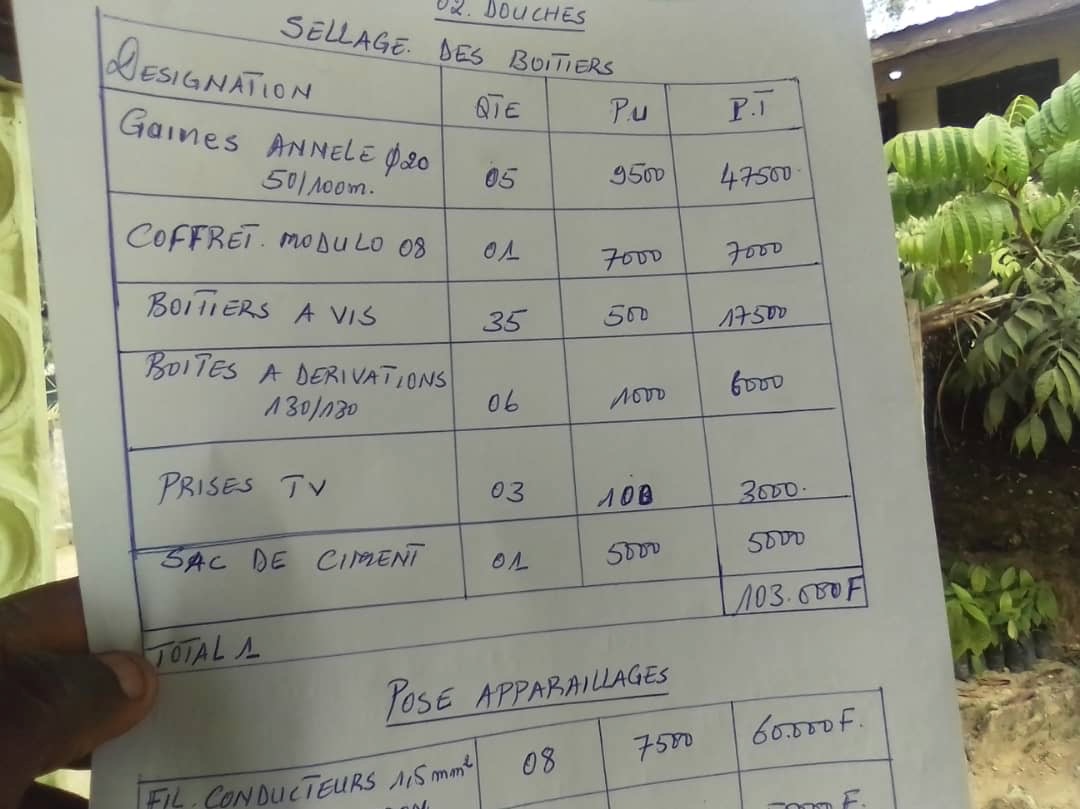 02. DOUCHES
SELLAGE. DES BOITIERS
DESIGNATION QTE P.U P.T
Gaines ANNELE φ20
50/100m. 05 9500 47500.
COFFRET. MODULO 08 01 7000 7000
BOITIERS A VIS 35 500 17500
BOITES A DERIVATIONS
130/130 06 1000 6000
PRISES TV 03 100 3000.
SAC DE CIMENT 01 5000 5000
103.000F
TOTAL 1
POSE APPARAILLAGES
FIL. CONDUCTEURS 1,5 mm² 08 7500 60.000F.